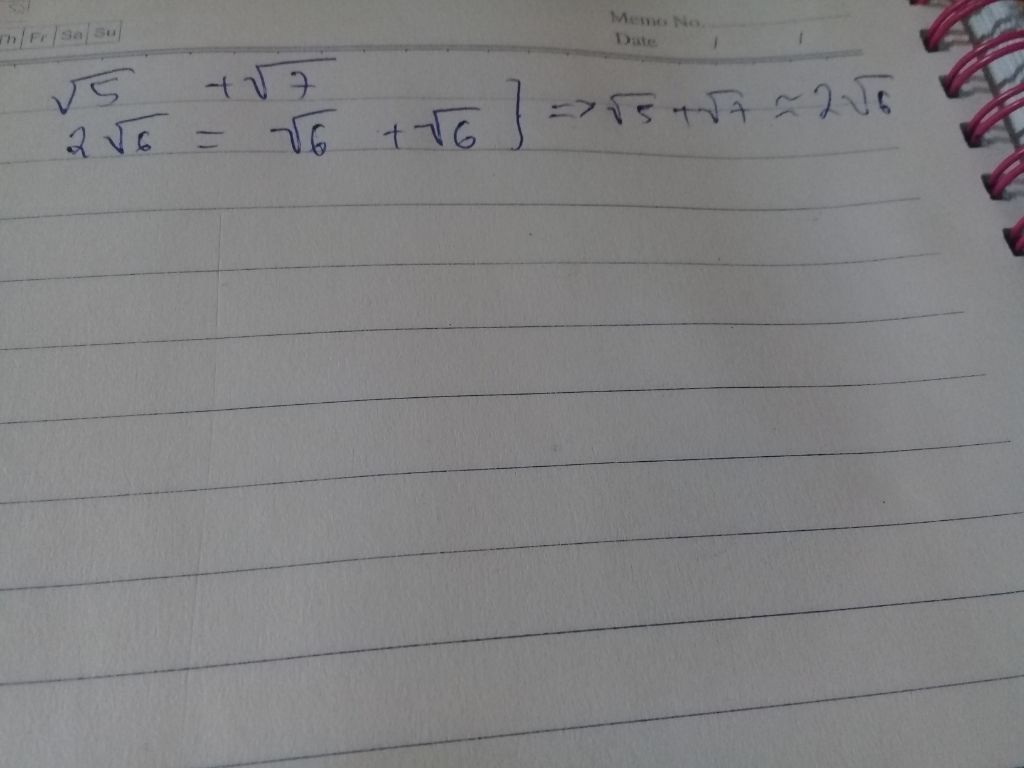 Th Fr Sa Su
Memo No.
Date / /
√5 +√7
2√6 = √6 +√6 ] => √5 +√7 ≈ 2√6